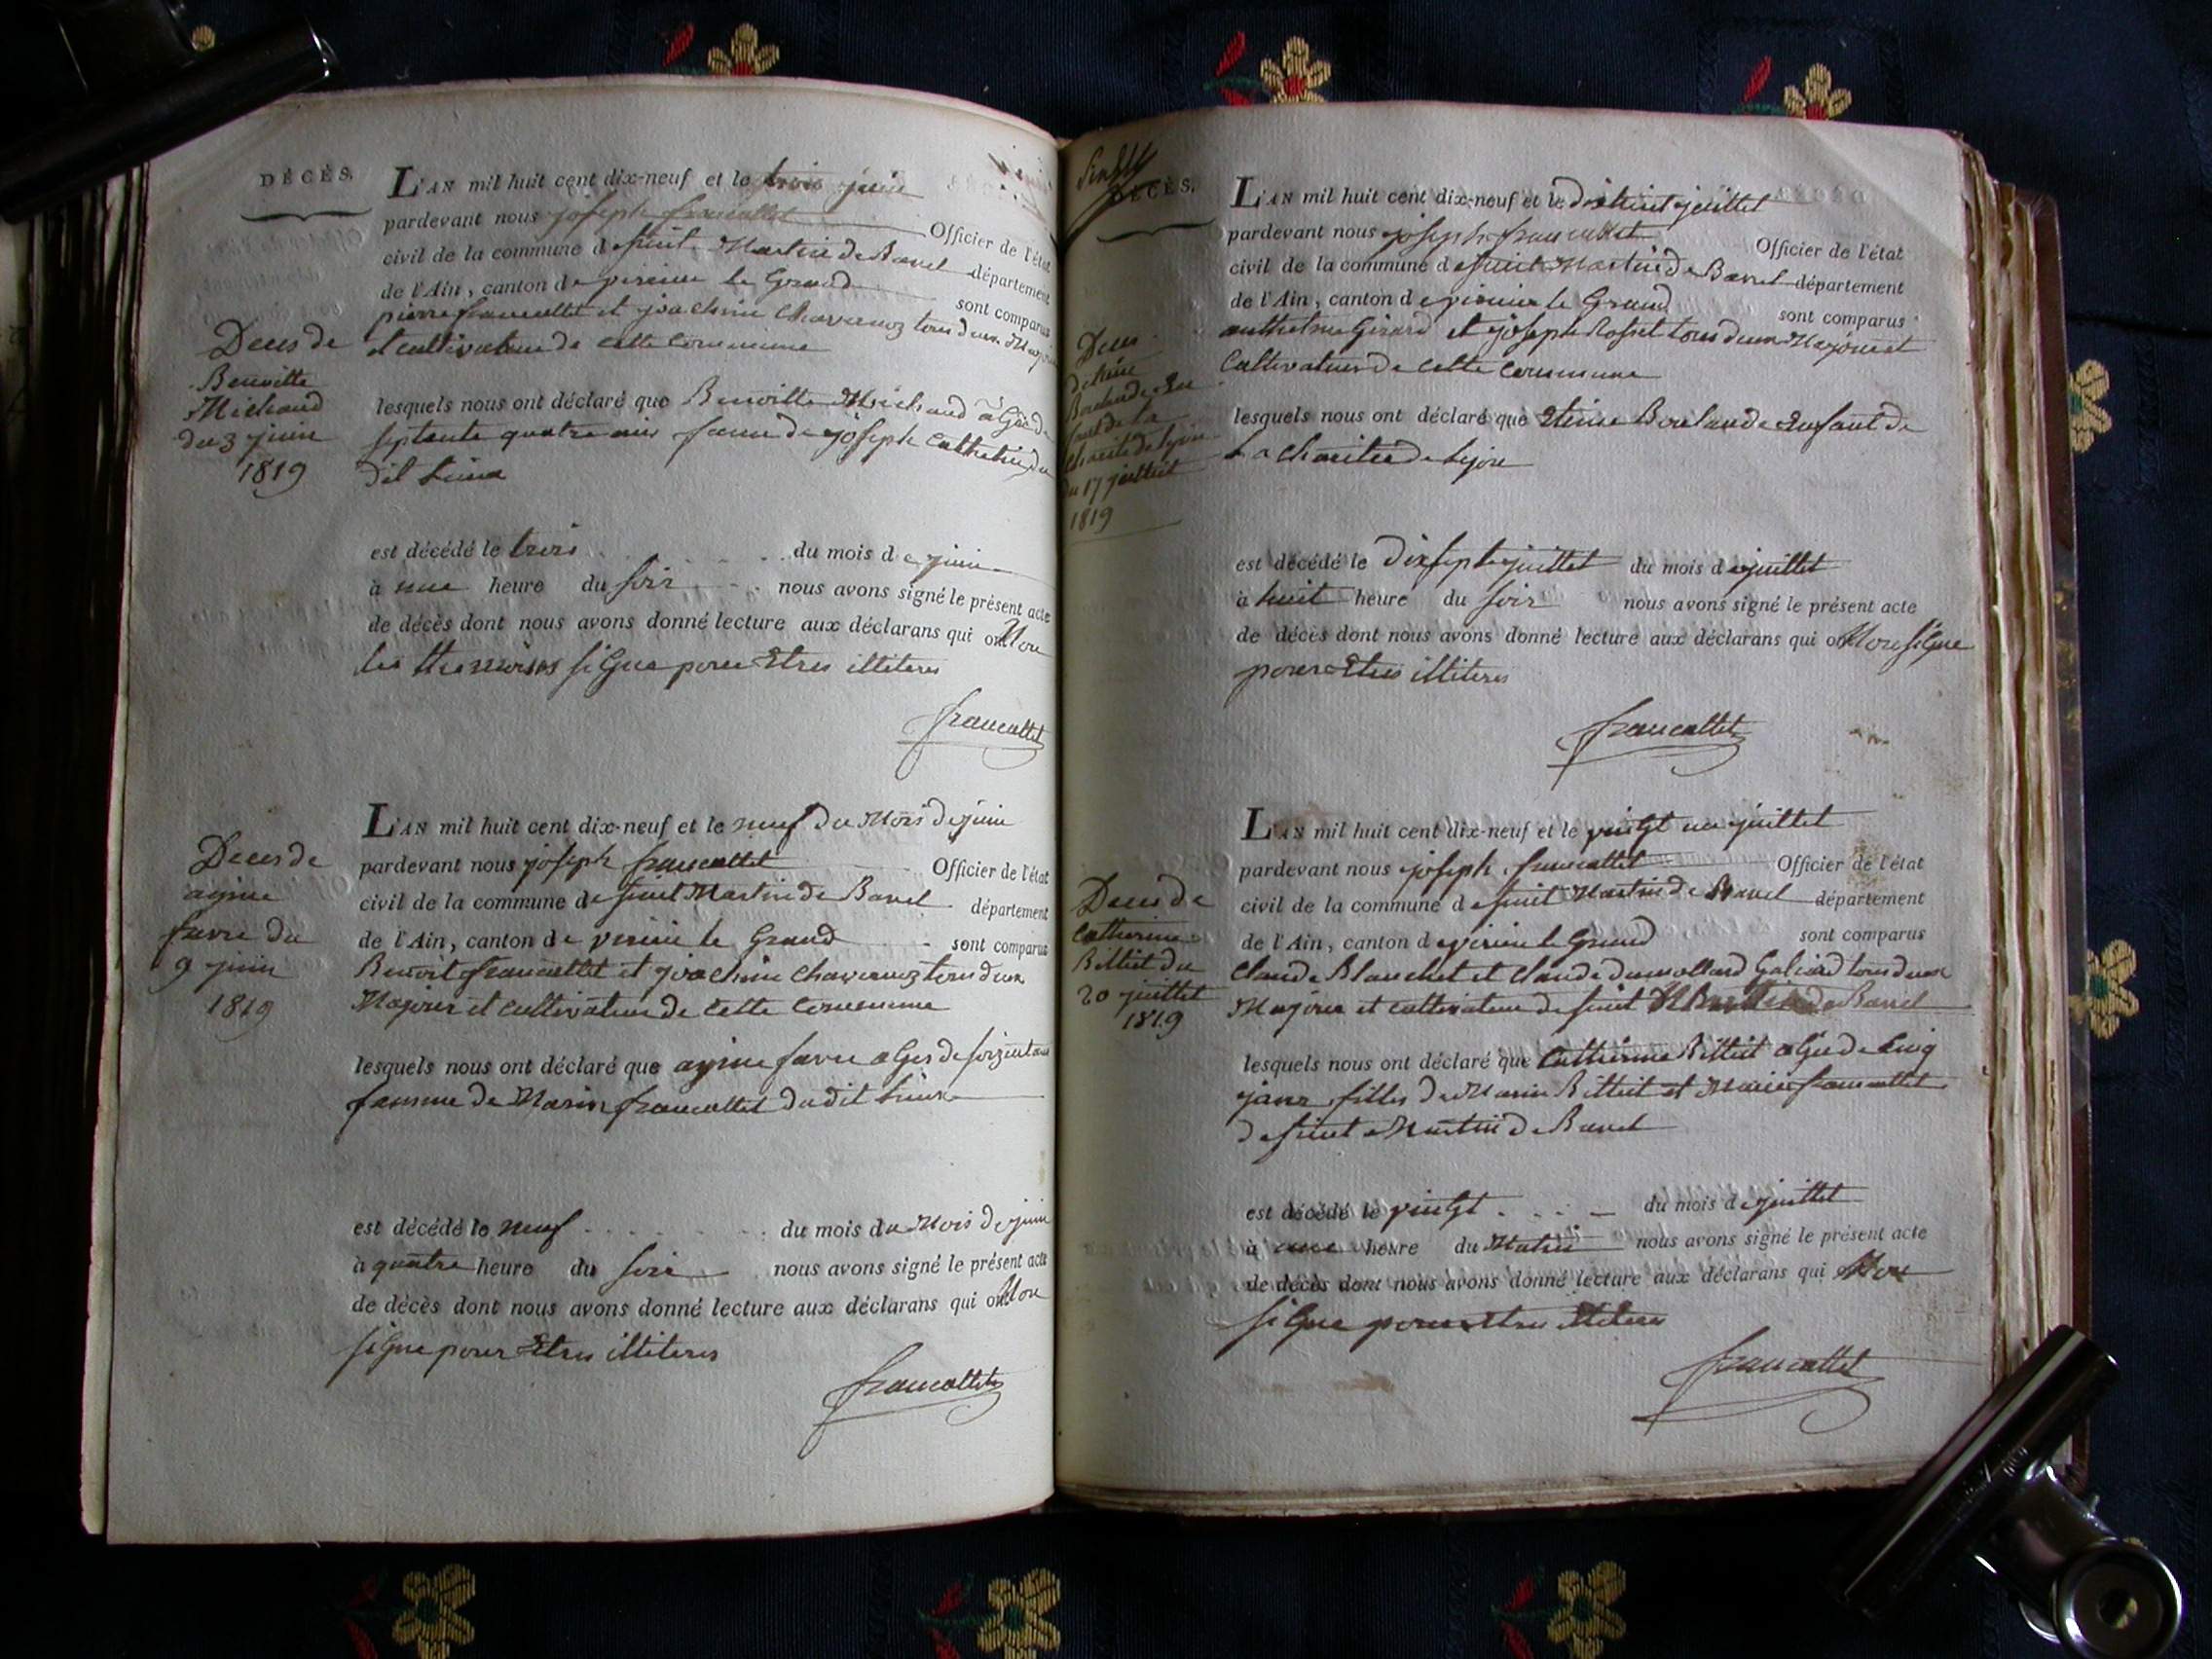 DÉCÈS.
L'AN mil huit cent dix-neuf et le trois juin
pardevant nous joseph francallet Officier de l'état
civil de la commune de saint Martin de Bavel département
de l'Ain, canton de virieu le Grand sont comparus
pierre francallet et joachim Chavannoz tous deux
et cultivateur de cette Commune
Deces de
Benoitte
Michaud
du 3 juin
1819
lesquels nous ont déclaré que Benoitte Michaud agée de
septante quatre ans fame de joseph Catthelin du
dit
est décédé le trois du mois de juin
à une heure du soir nous avons signé le présent acte
de décès dont nous avons donné lecture aux déclarans qui ont Non
siGne pour Etres illiteres
francallet
L'AN mil huit cent dix-neuf et le neuf du Mois de juin
pardevant nous joseph francallet Officier de l'état
civil de la commune de saint Martin de Bavel département
de l'Ain, canton de virieu le Grand sont comparus
Benoit francallet et joachim Chavannoz tous deux
Majeur et cultivateur de cette Commune
Deces de
ayme
favre du
9 juin
1819
lesquels nous ont déclaré que ayme favre aGes de
famme de Marin francallet du dit
est décédé le neuf du mois du Mois de juin
à quatre heure du soir nous avons signé le présent acte
de décès dont nous avons donné lecture aux déclarans qui ont Non
siGne pour Etres illiteres
francallet
DÉCÈS.
L'AN mil huit cent dix-neuf et le dixhuit juillet
pardevant nous joseph francallet Officier de l'état
civil de la commune de saint Martin de Bavel département
de l'Ain, canton de virieu le Grand sont comparus
Girard et joseph Rosset tous deux Majeur et
Cultivateur de cette Commune
Deces
du 17 juillet
1819
lesquels nous ont déclaré que Enfant de
La Charitee de
est décédé le dixsept juillet du mois de juillet
à huit heure du soir nous avons signé le présent acte
de décès dont nous avons donné lecture aux déclarans qui ont Non siGne
pour Etres illiteres
francallet
L'AN mil huit cent dix-neuf et le vingt un juillet
pardevant nous joseph francallet Officier de l'état
civil de la commune de saint Martin de Bavel département
de l'Ain, canton de virieu le Grand sont comparus
Claude Blanchet et Claude dumollard Galiard tous deux
Majeur et cultivateur de saint Martin de Bavel
Deces de
Catherine
Bettet du
20 juillet
1819
lesquels nous ont déclaré que Catherine Bettet aGée de Cinq
filles de Marin Bettet et Marie francallet
de saint Martin de Bavel
est décédé le vingt du mois de juillet
à une heure du Matin nous avons signé le présent acte
de décès dont nous avons donné lecture aux déclarans qui Non
siGne pour Etres illiteres
francallet